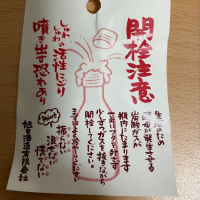 開栓注意
しゅわしゅわの活性にごり
噴き出す恐れあり
生酒のため
酵母が発生させる
炭酸ガスが
瓶内にたまります
一気にフタを外さず
少しずつガスを抜きながら
開栓してください。
振らない
旭日酒造有限会社